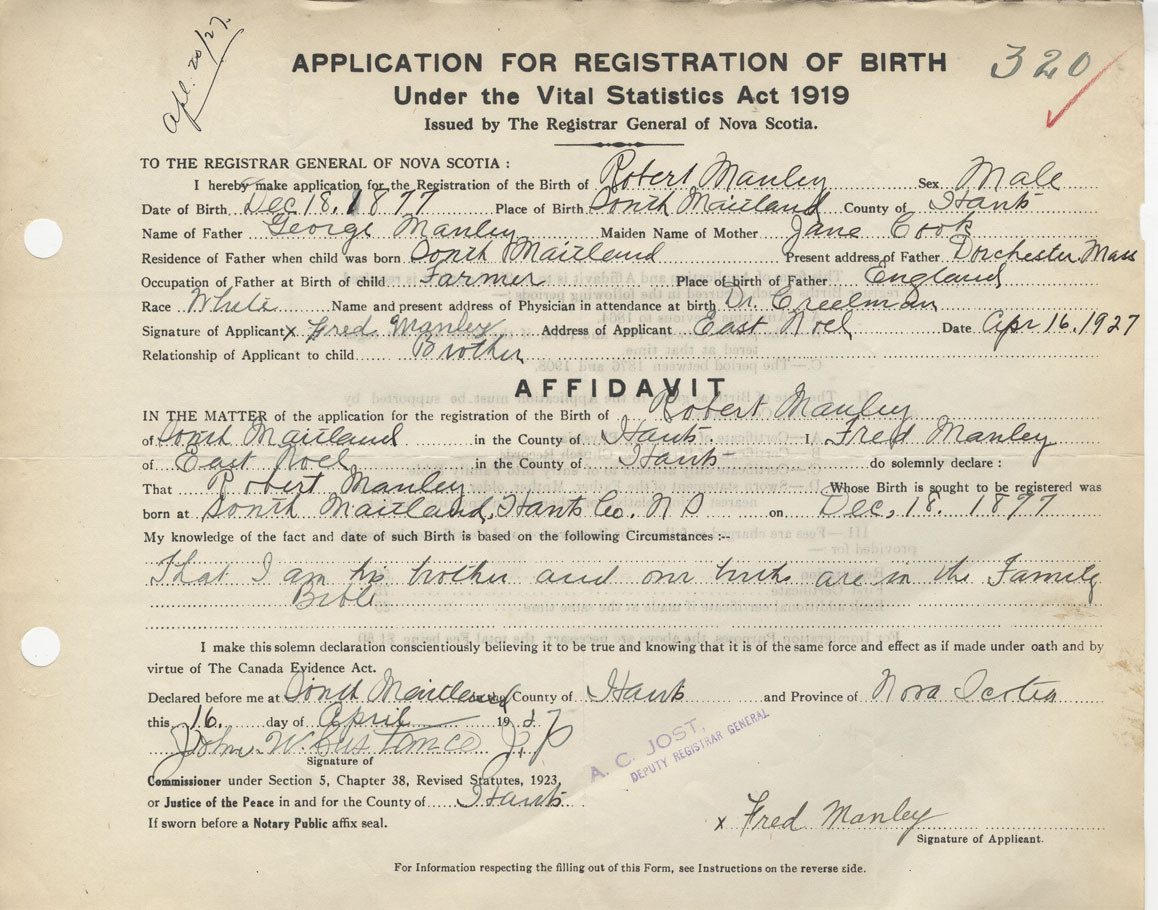 Apl. 20/27.
320
APPLICATION FOR REGISTRATION OF BIRTH
Under the Vital Statistics Act 1919
Issued by The Registrar General of Nova Scotia.
TO THE REGISTRAR GENERAL OF NOVA SCOTIA :
I hereby make application for the Registration of the Birth of Robert Manley Sex Male
Date of Birth Dec 18. 1877 Place of Birth South Maitland County of Hants
Name of Father George Manley Maiden Name of Mother Jane Cook
Residence of Father when child was born South Maitland Present address of Father Dorchester Mass
Occupation of Father at Birth of child Farmer Place of birth of Father England
Race White Name and present address of Physician in attendance at birth Dr. Creelman
Signature of Applicant x Fred Manley Address of Applicant East Noel Date Apr 16. 1927
Relationship of Applicant to child Brother
AFFIDAVIT
IN THE MATTER of the application for the registration of the Birth of Robert Manley
of South Maitland in the County of Hants I, Fred Manley
of East Noel in the County of Hants do solemnly declare :
That Robert Manley Whose Birth is sought to be registered was
born at South Maitland, Hants Co, N S on Dec, 18. 1877
My knowledge of the fact and date of such Birth is based on the following Circumstances :--
That I am his brother and our births are in the Family
Bible
I make this solemn declaration conscientiously believing it to be true and knowing that it is of the same force and effect as if made under oath and by
virtue of The Canada Evidence Act.
Declared before me at South Maitland in the County of Hants and Province of Nova Scotia
this 16. day of April 1927
John W. Custance J. P
Signature of
A. C. JOST,
DEPUTY REGISTRAR GENERAL
Commissioner under Section 5, Chapter 38, Revised Statutes, 1923,
or Justice of the Peace in and for the County of Hants
If sworn before a Notary Public affix seal.
x Fred Manley
Signature of Applicant.
For Information respecting the filling out of this Form, see Instructions on the reverse side.